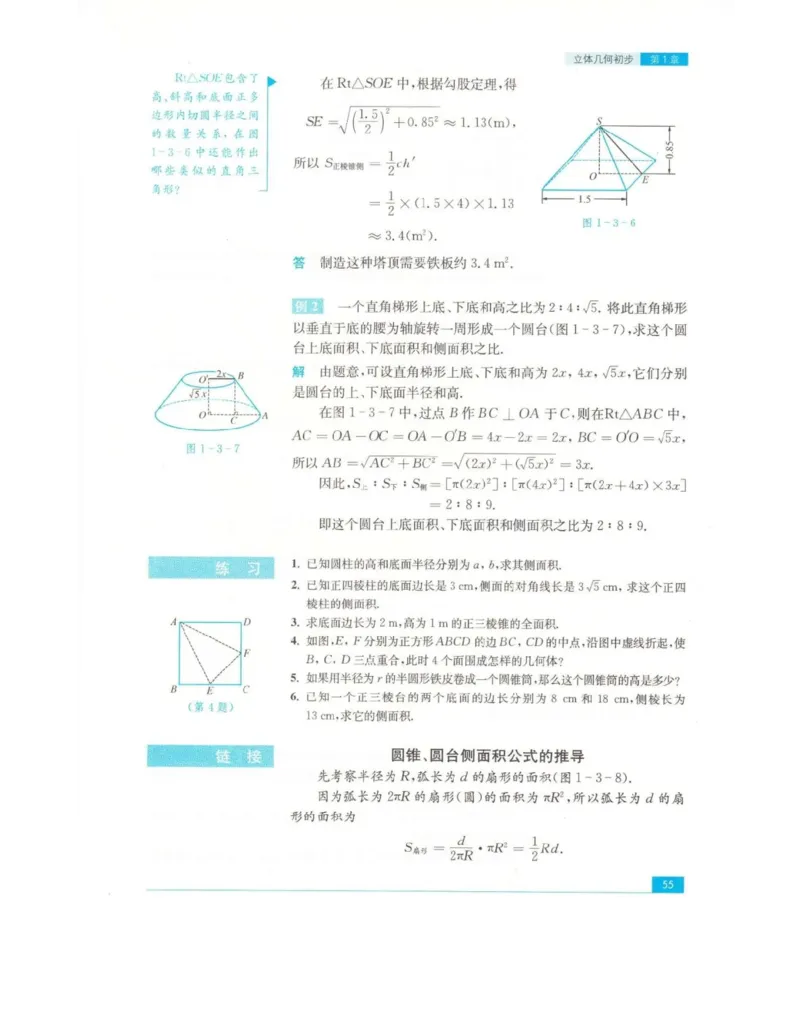 立体几何初步 第1章
Rt△SOE包含了
高、斜高和底面正多
边形内切圆半径之间
的数量关系,在图
1-3-6中还能作出
哪些类似的直角三
角形?
在Rt△SOE中,根据勾股定理,得
SE=√((1.5/2)²+0.85²)≈1.13(m),
所以S正棱锥侧=1/2ch′
=1/2×(1.5×4)×1.13
≈3.4(m²).
S
O
E
0.85
1.5
图1-3-6
答 制造这种塔顶需要铁板约3.4 m².
例2 一个直角梯形上底、下底和高之比为2∶4∶√5. 将此直角梯形
以垂直于底的腰为轴旋转一周形成一个圆台(图1-3-7),求这个圆
台上底面积、下底面积和侧面积之比.
解 由题意,可设直角梯形上底、下底和高为2x,4x,√5x,它们分别
是圆台的上、下底面半径和高.
在图1-3-7中,过点B作BC⊥OA于C,则在Rt△ABC中,
AC=OA-OC=OA-O′B=4x-2x=2x,BC=O′O=√5x,
所以AB=√(AC²+BC²)=√((2x)²+(√5x)²)=3x.
因此,S上∶S下∶S侧=[π(2x)²]∶[π(4x)²]∶[π(2x+4x)×3x]
=2∶8∶9.
即这个圆台上底面积、下底面积和侧面积之比为2∶8∶9.
O′ 2x B
√5x
O C A
图1-3-7
练 习
1. 已知圆柱的高和底面半径分别为a,b,求其侧面积.
2. 已知正四棱柱的底面边长是3 cm,侧面的对角线长是3√5 cm,求这个正四
棱柱的侧面积.
3. 求底面边长为2 m,高为1 m的正三棱锥的全面积.
4. 如图,E,F分别为正方形ABCD的边BC,CD的中点,沿图中虚线折起,使
B,C,D三点重合,此时4个面围成怎样的几何体?
5. 如果用半径为r的半圆形铁皮卷成一个圆锥筒,那么这个圆锥筒的高是多少?
6. 已知一个正三棱台的两个底面的边长分别为8 cm和18 cm,侧棱长为
13 cm,求它的侧面积.
A D
F
B E C
(第4题)
链 接
圆锥、圆台侧面积公式的推导
先考察半径为R,弧长为d的扇形的面积(图1-3-8).
因为弧长为2πR的扇形(圆)的面积为πR²,所以弧长为d的扇
形的面积为
S扇形=d/2πR·πR²=1/2Rd.
55